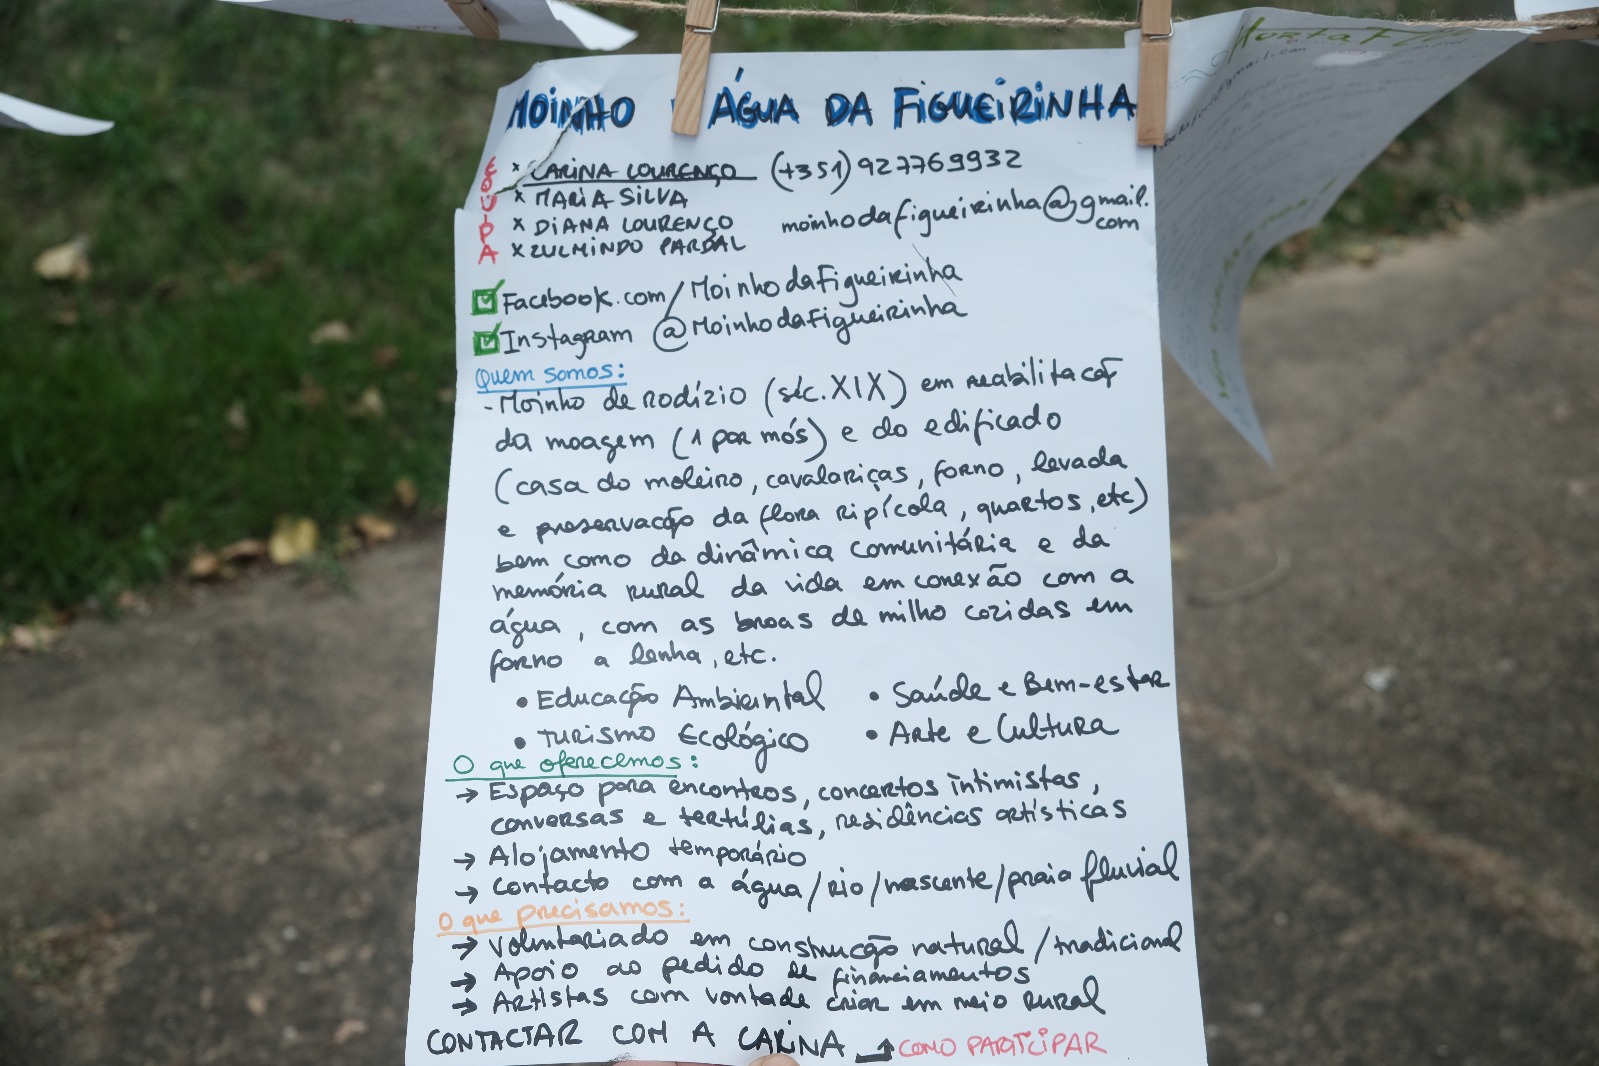 MOINHO ÁGUA DA FIGUEIRINHA
EQUIPA
x CARINA LOURENÇO (+351) 927769932
x MARIA SILVA
x DIANA LOURENÇO moinhodafigueirinha@gmail.
com
x ZULMINDO PARDAL
Facebook.com/MoinhodaFigueirinha
Instagram @MoinhodaFigueirinha
Quem somos:
- Moinho de rodízio (séc. XIX) em reabilitação
da moagem (1 par mós) e do edificado
(casa do moleiro, cavalariças, forno, levada
e preservação da flora ripícola, quartos, etc)
bem como da dinâmica comunitária e da
memória rural da vida em conexão com a
água, com as broas de milho cozidas em
forno a lenha, etc.
• Educação Ambiental • Saúde e Bem-estar
• Turismo Ecológico • Arte e Cultura
O que oferecemos:
→ Espaço para encontros, concertos intimistas,
conversas e tertúlias, residências artísticas
→ Alojamento temporário
→ Contacto com a água/rio/nascente/praia fluvial
O que precisamos:
→ Voluntariado em construção natural/tradicional
→ Apoio ao pedido de financiamentos
→ Artistas com vontade criar em meio rural
CONTACTAR COM A CARINA COMO PARTICIPAR